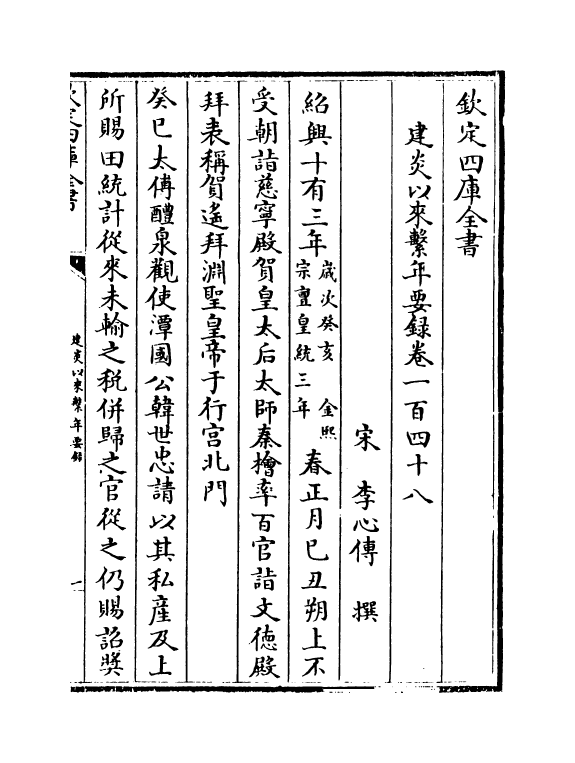 欽定四庫全書
建炎以來繫年要録卷一百四十八
宋 李心傳 撰
紹興十有三年歲次癸亥 金熙宗亶皇統三年春正月己丑朔上不
受朝詣慈寧殿賀皇太后太師秦檜率百官詣文德殿
拜表稱賀遙拜淵聖皇帝于行宫北門
癸巳太傅醴泉觀使潭國公韓世忠請以其私產及上
所賜田統計從來未輸之税併歸之官從之仍賜詔獎
欽定四庫全書
建炎以來繫年要録
一